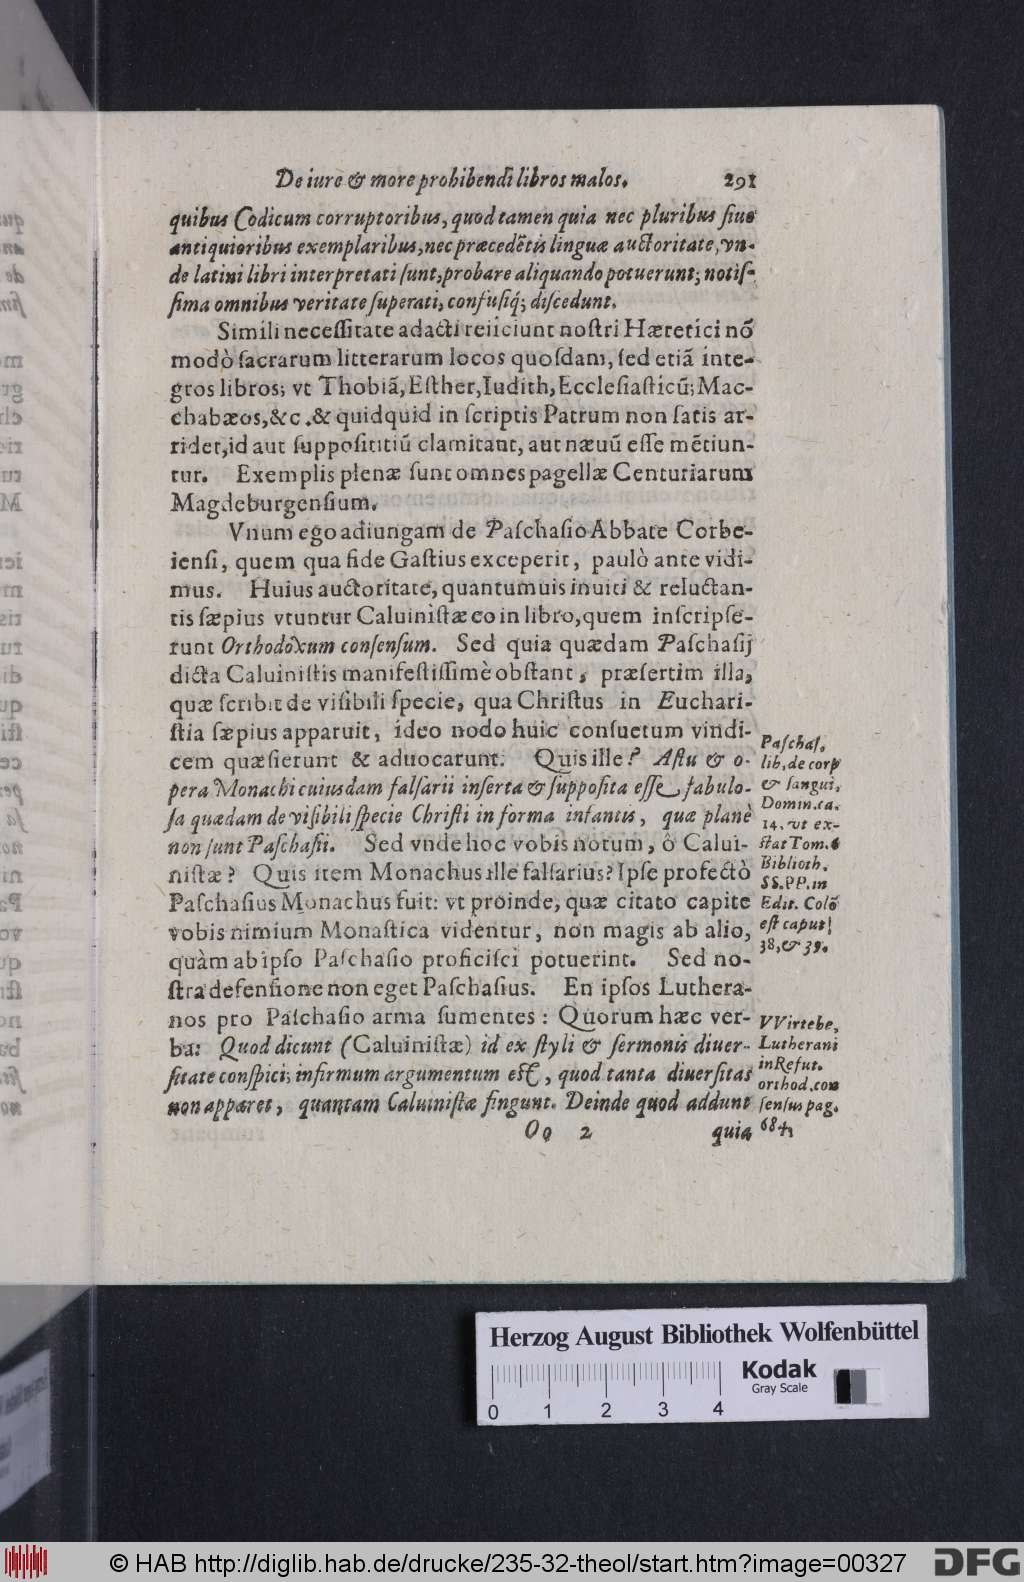 De iure & more prohibendi libros malos. 291
quibus Codicum corruptoribus, quod tamen quia nec pluribus siue
antiquioribus exemplaribus, nec præcedētis linguæ auctoritate, vn-
de latini libri interpretati sunt, probare aliquando potuerunt; notis-
sima omnibus veritate superati, confusiq́; discedunt.
Simili necessitate adacti reiiciunt nostri Hæretici nō
modò sacrarum litterarum locos quosdam, sed etiā inte-
gros libros; vt Thobiā, Esther, Iudith, Ecclesiasticū; Mac-
chabæos, &c. & quidquid in scriptis Patrum non satis ar-
ridet, id aut supposititiū clamitant, aut næuū esse mētiun-
tur. Exemplis plenæ sunt omnes pagellæ Centuriarum
Magdeburgensium.
Vnum ego adiungam de Paschasio Abbate Corbe-
iensi, quem qua fide Gastius exceperit, paulò ante vidi-
mus. Huius auctoritate, quantumuis inuiti & reluctan-
tis sæpius vtuntur Caluinistæ eo in libro, quem inscripse-
runt Orthodoxum consensum. Sed quia quædam Paschasij
dicta Caluinistis manifestissimè obstant, præsertim illa,
quæ scribit de visibili specie, qua Christus in Euchari-
stia sæpius apparuit, ideo nodo huic consuetum vindi-
cem quæsierunt & aduocarunt. Quis ille? Astu & o-
pera Monachi cuiusdam falsarii inserta & supposita esse fabulo-
sa quædam de visibili specie Christi in forma infantis, quæ planè
non sunt Paschasii. Sed vnde hoc vobis notum, ô Calui-
nistæ? Quis item Monachus ille falsarius? Ipse profectò
Paschasius Monachus fuit: vt proinde, quæ citato capite
vobis nimium Monastica videntur, non magis ab alio,
quàm ab ipso Paschasio proficisci potuerint. Sed no-
stra defensione non eget Paschasius. En ipsos Luthera-
nos pro Paschasio arma sumentes: Quorum hæc ver-
ba: Quod dicunt (Caluinistæ) id ex styli & sermonis diuer-
sitate conspici; infirmum argumentum est, quod tanta diuersitas
non apparet, quantam Caluinistæ fingunt. Deinde quod addunt
Oo 2 quia
Paschas.
lib. de corp
& sangui.
Domin. ca.
14. vt ex-
stat Tom. 6
Biblioth.
SS. PP. in
Edit. Colō
est caput
38, & 39.
VVirtebe.
Lutherani
in Refut.
orthod. con
sensus pag.
684.
Herzog August Bibliothek Wolfenbüttel
Kodak
Gray Scale
0 1 2 3 4
© HAB http://diglib.hab.de/drucke/235-32-theol/start.htm?image=00327
DFG